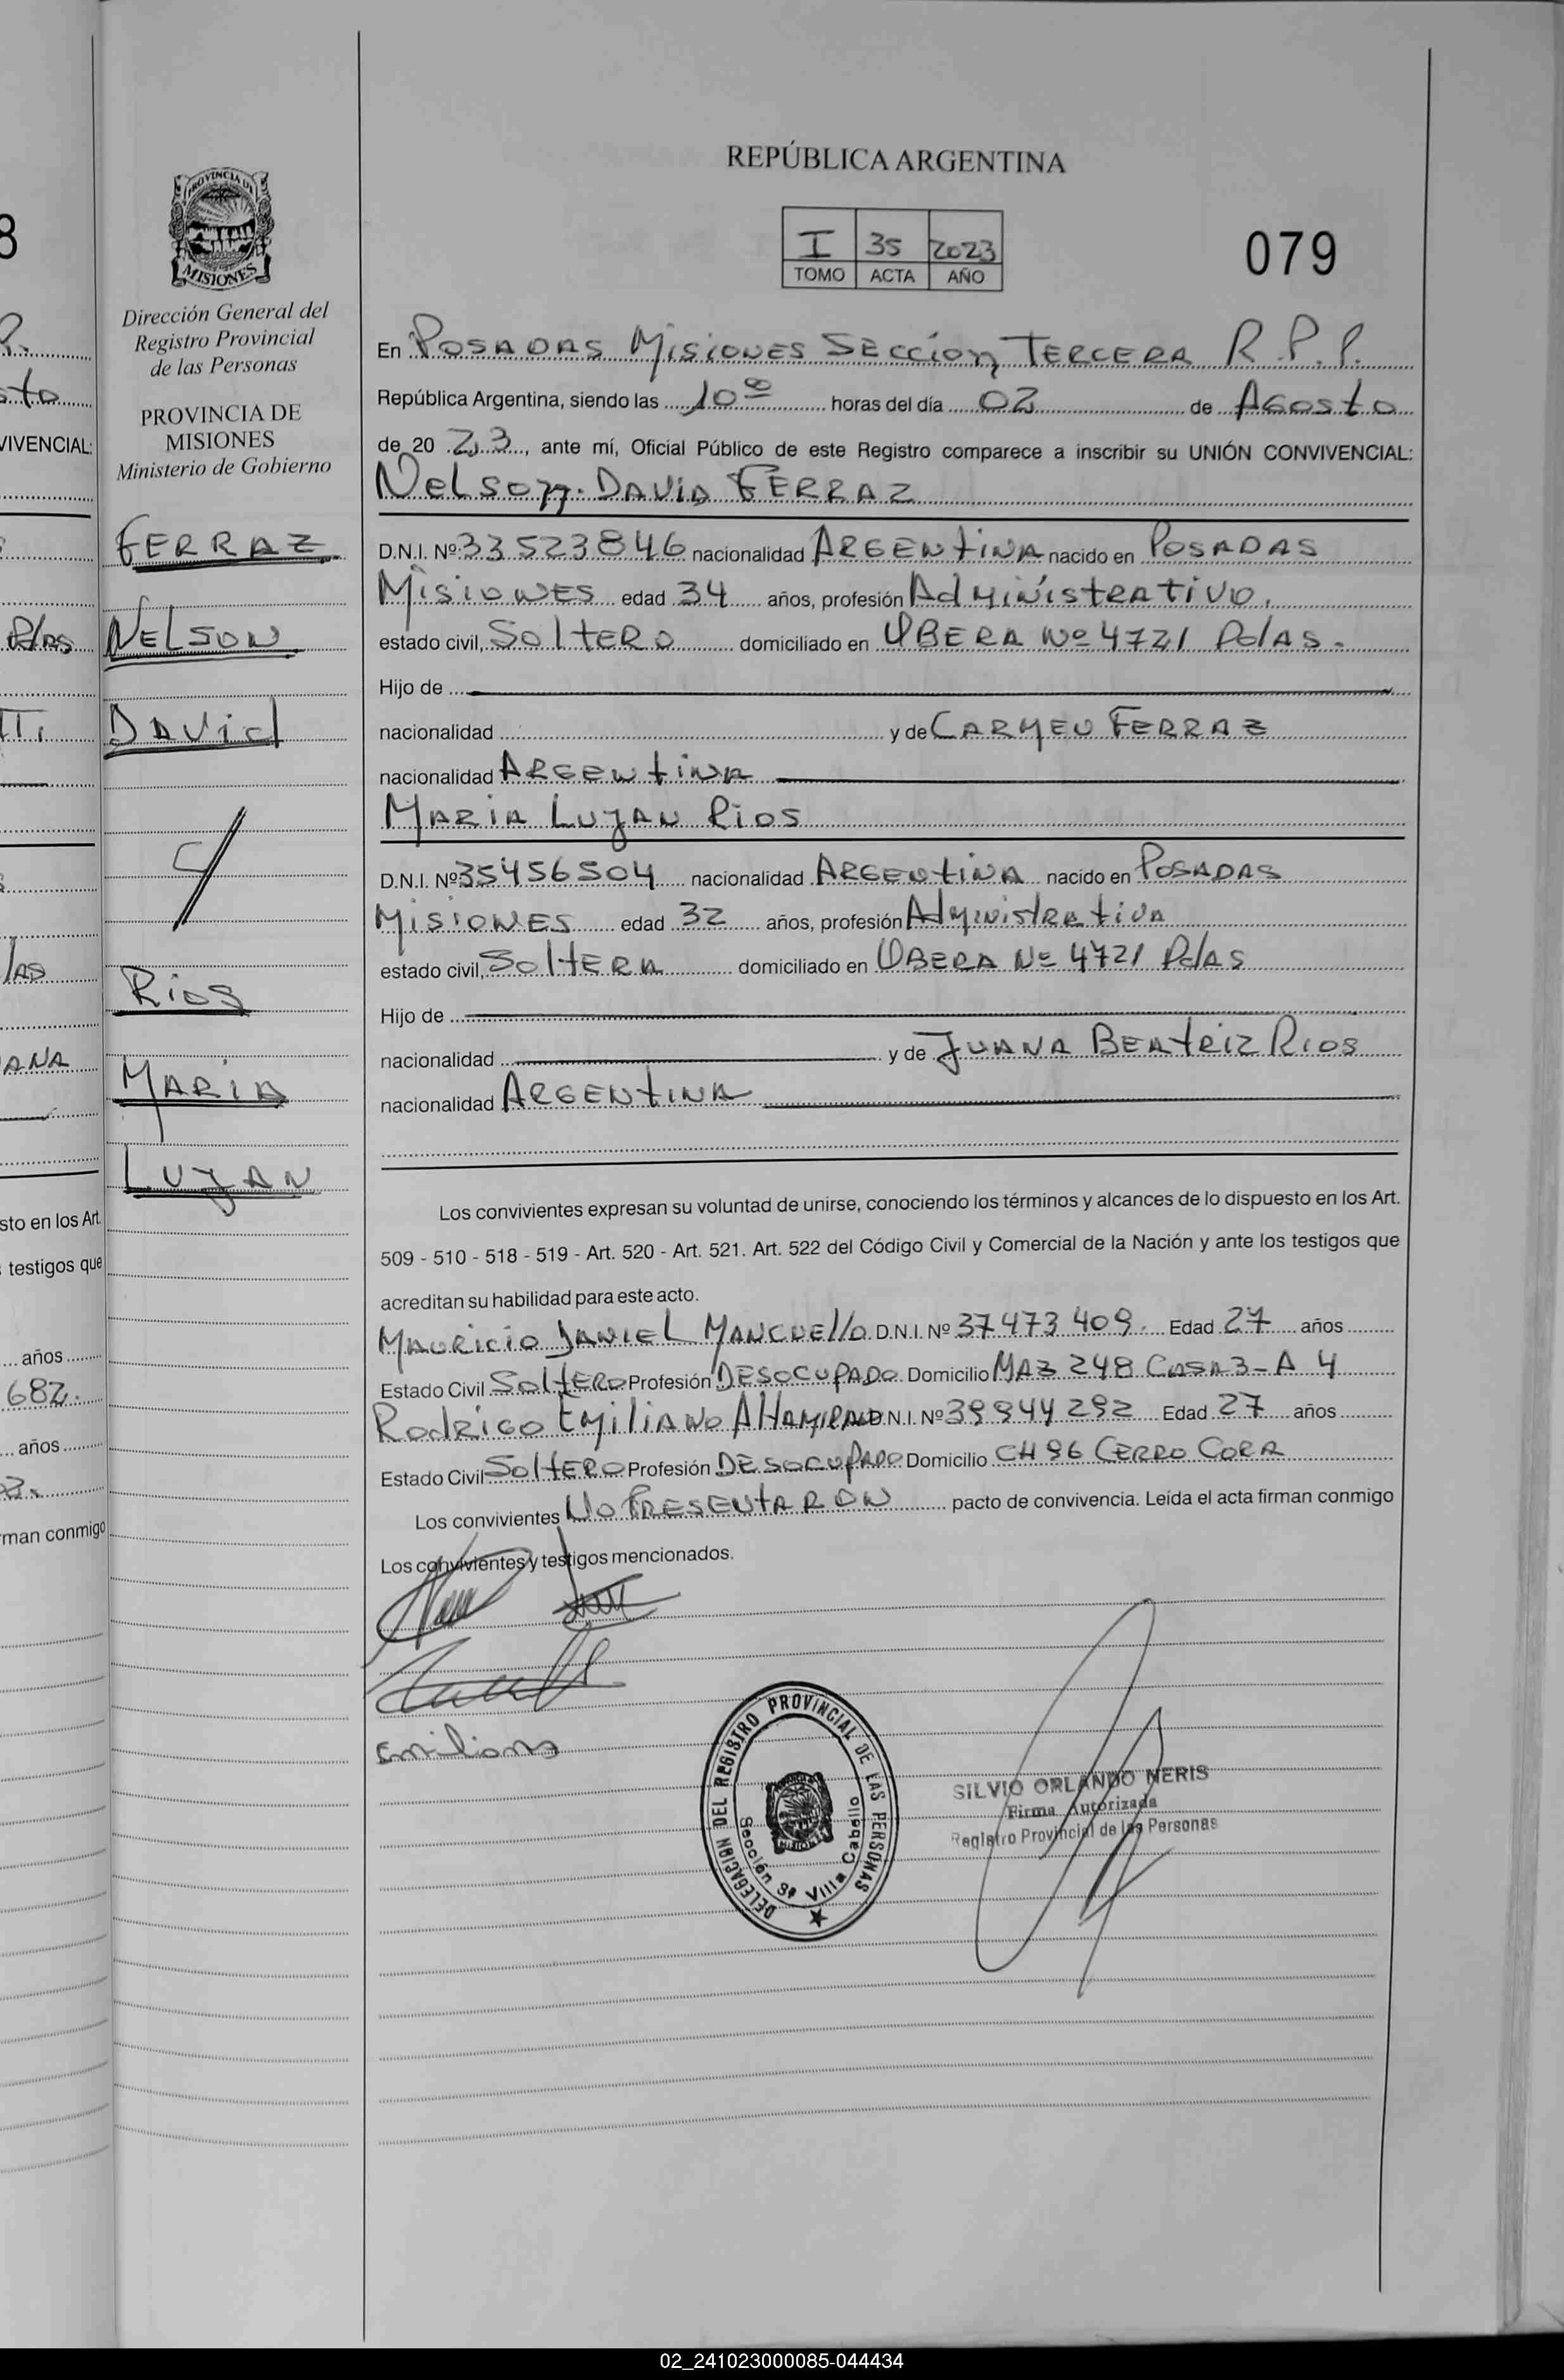 REPÚBLICA ARGENTINA
I 35 2023
TOMO ACTA AÑO
079
PROVINCIA DE
MISIONES
Dirección General del
Registro Provincial
de las Personas
PROVINCIA DE
MISIONES
Ministerio de Gobierno
FERRAZ
NELSON
DAVid
Y
RioS
MARIA
LUJAN
En POSADAS MisiONES SECCion TERCERA R.P.P.
República Argentina, siendo las 10⁰⁰ horas del día 02 de AGosto
de 20 23, ante mí, Oficial Público de este Registro comparece a inscribir su UNIÓN CONVIVENCIAL:
NelSon DAViD FERRAZ
D.N.I. Nº 33523846 nacionalidad ARGENtiNA nacido en POSADAS
MisiONES edad 34 años, profesión AdMiNistRAtivo.
estado civil, SoltERO domiciliado en OBERA Nº 4721 Pdas.
Hijo de
nacionalidad y de CARMEN FERRAZ
nacionalidad ARGENtiNA
MARIA LUJAN RiOS
D.N.I. Nº 35456504 nacionalidad ARGENtiNA nacido en POSADAS
MISIONES edad 32 años, profesión AdMiNistRAtivA
estado civil, SoltERA domiciliado en OBERA Nº 4721 PdAS
Hijo de
nacionalidad y de JUANA BEAtRiz RioS
nacionalidad ARGENtiNA
Los convivientes expresan su voluntad de unirse, conociendo los términos y alcances de lo dispuesto en los Art.
509 - 510 - 518 - 519 - Art. 520 - Art. 521. Art. 522 del Código Civil y Comercial de la Nación y ante los testigos que
acreditan su habilidad para este acto.
MAURiCiO DANiEL MANCUEllo D.N.I. Nº 37473409. Edad 27 años
Estado Civil SoltERO Profesión DESOCUPADO Domicilio MAZ 248 CASA 3-A 4
RodRiGO EMiLiANO AltAMiRANO D.N.I. Nº 39944292 Edad 27 años
Estado Civil SoltERO Profesión DESOCUPADO Domicilio CH 96 CERRO CORA
Los convivientes NO PRESENtARON pacto de convivencia. Leída el acta firman conmigo
Los convivientes y testigos mencionados.
Emiliano
DELEGACION DEL REGISTRO PROVINCIAL DE LAS PERSONAS
Sección 3ª Villa Cabello
SILVIO ORLANDO NERIS
Firma Autorizada
Registro Provincial de las Personas
02_241023000085-044434